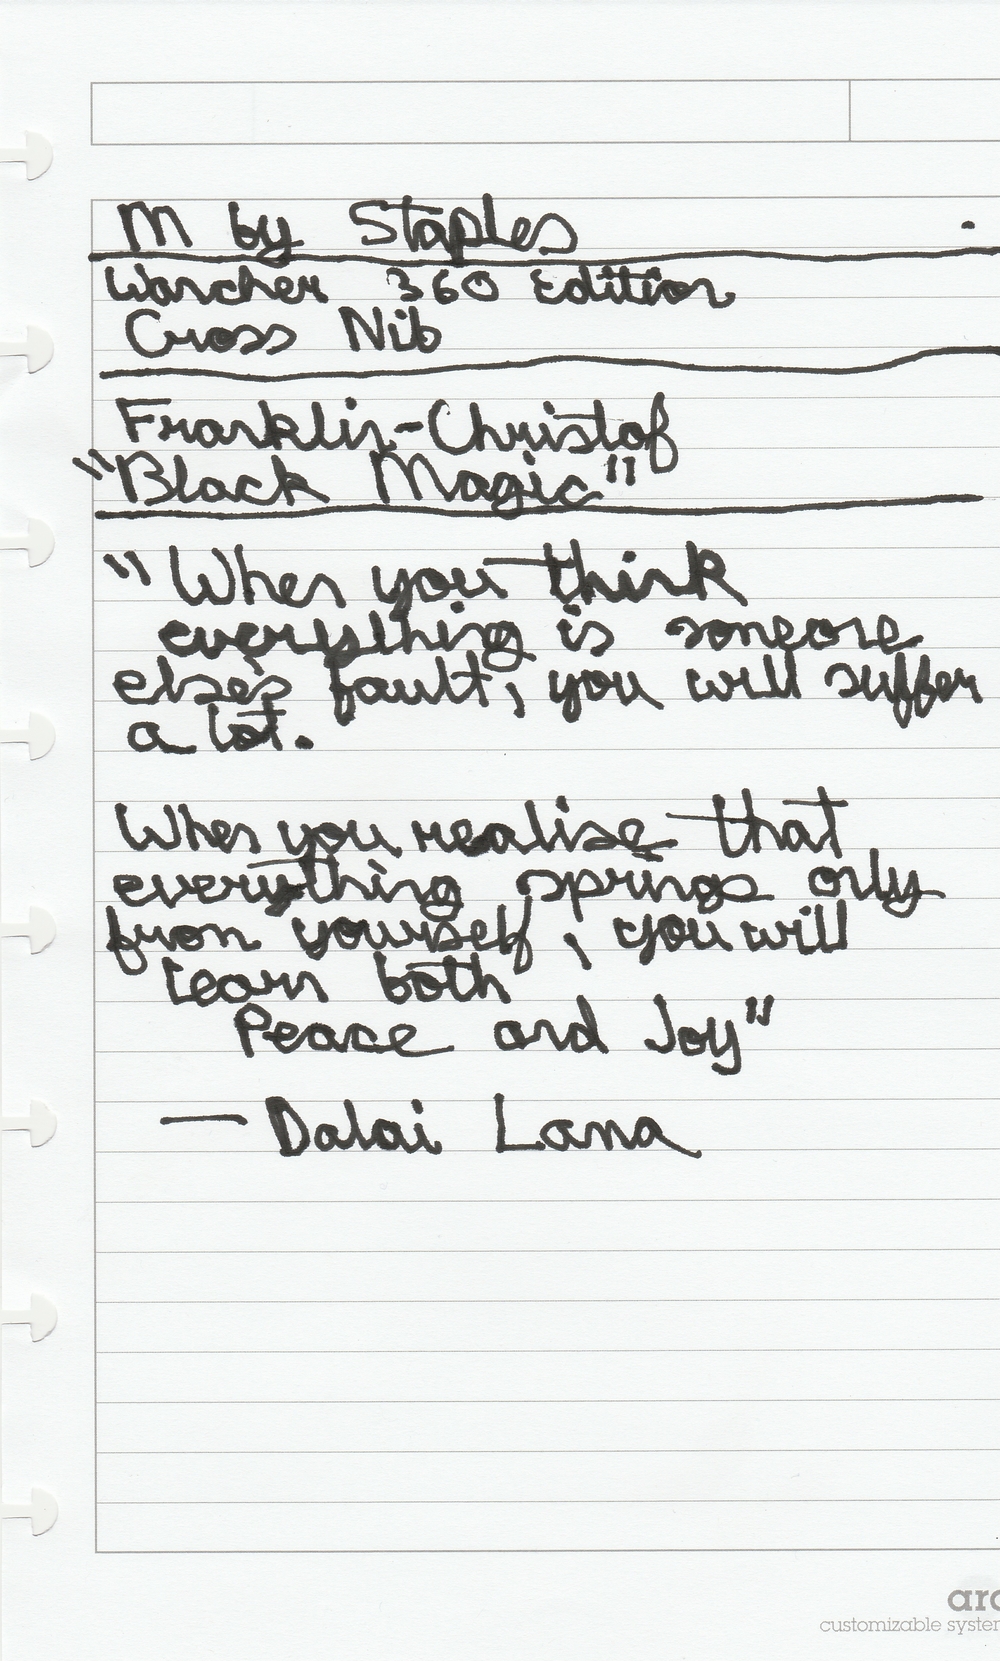 M by Staples
Wancher 360 Edition
Cross Nib
Franklin-Christof
"Black Magic"
"When you think
everything is someone
else's fault, you will suffer
a lot.
When you realise that
everything springs only
from yourself, you will
learn both
Peace and Joy"
— Dalai Lama
arc
customizable system